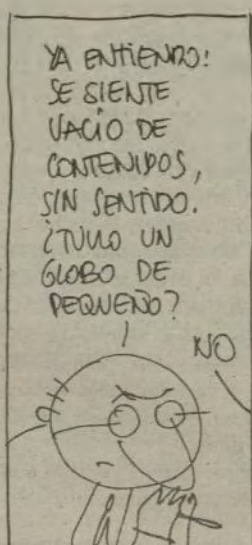 YA ENTIENDO:
SE SIENTE
VACÍO DE
CONTENIDOS,
SIN SENTIDO.
¿TUVO UN
GLOBO DE
PEQUEÑO?
NO